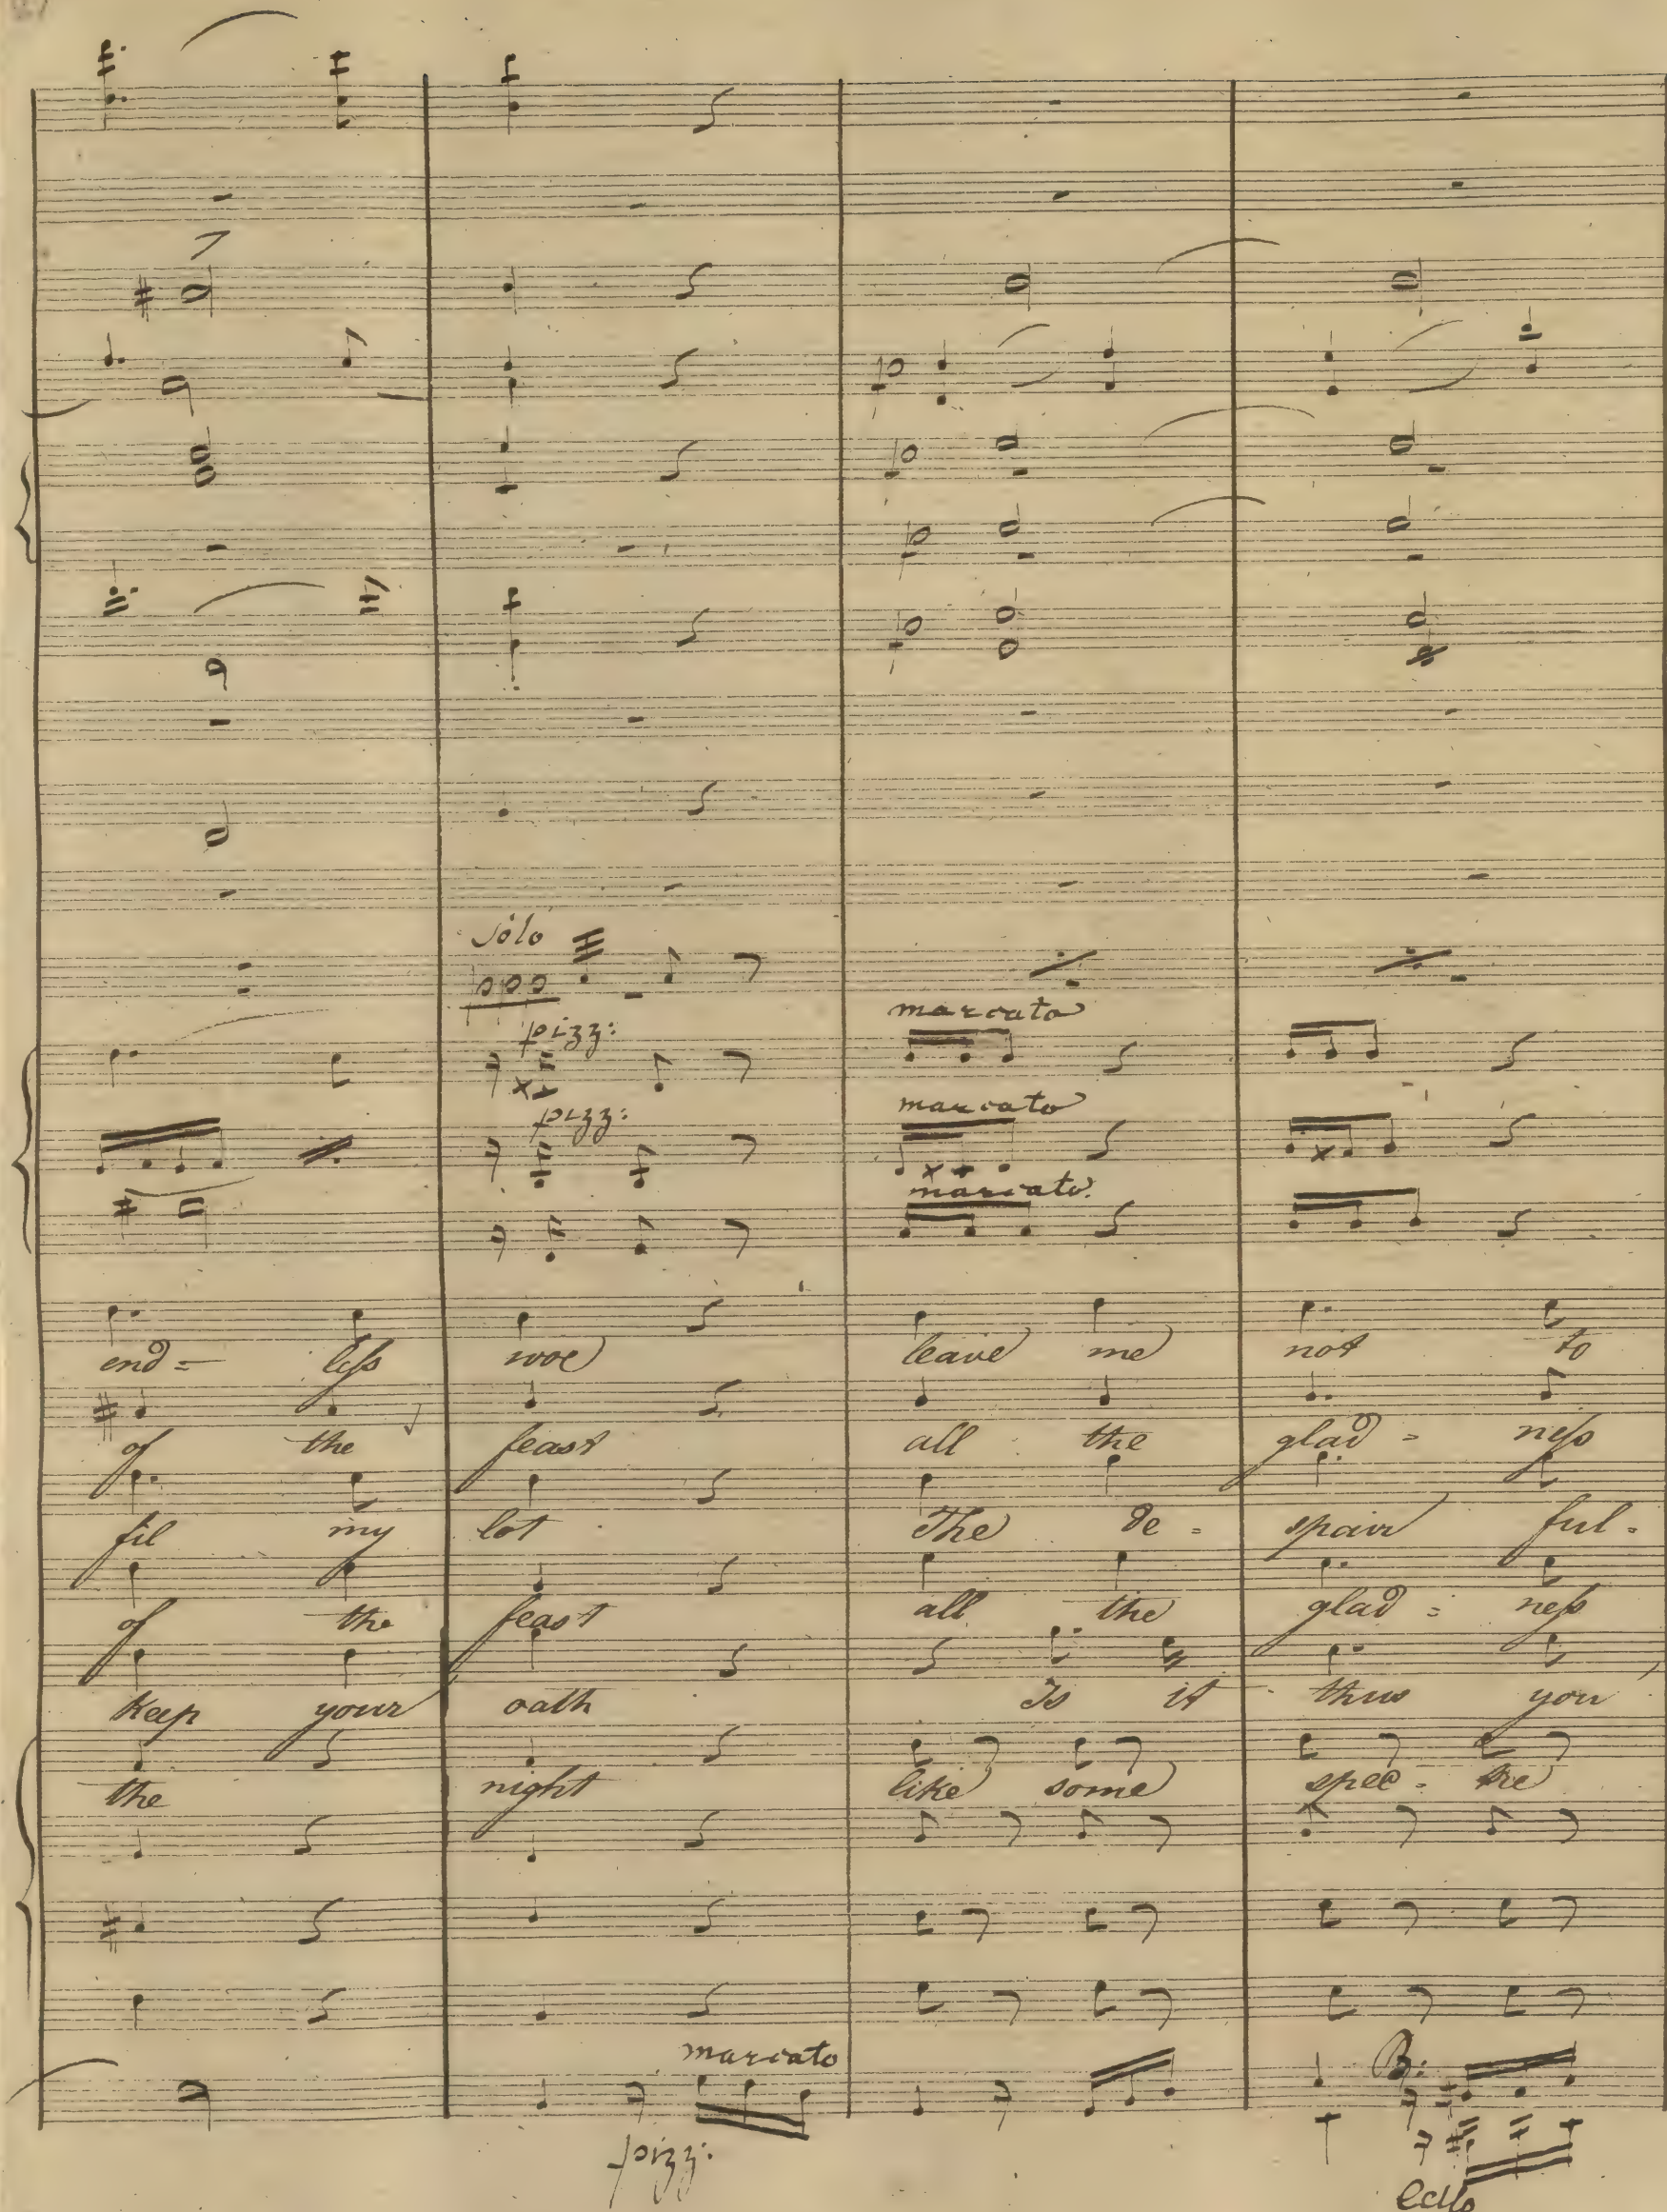 solo
ppp
pizz: marcato
pizz: marcato
marcato.
p
p
p
p
end= leſs woe leave me not to
of the feast all the glad = neſs
fil my lot The de = spair ful=
of the feast all the glad = neſs
keep your oath Is it thus you
the night like some spec= tre
marcato
B:
pizz:
Cello